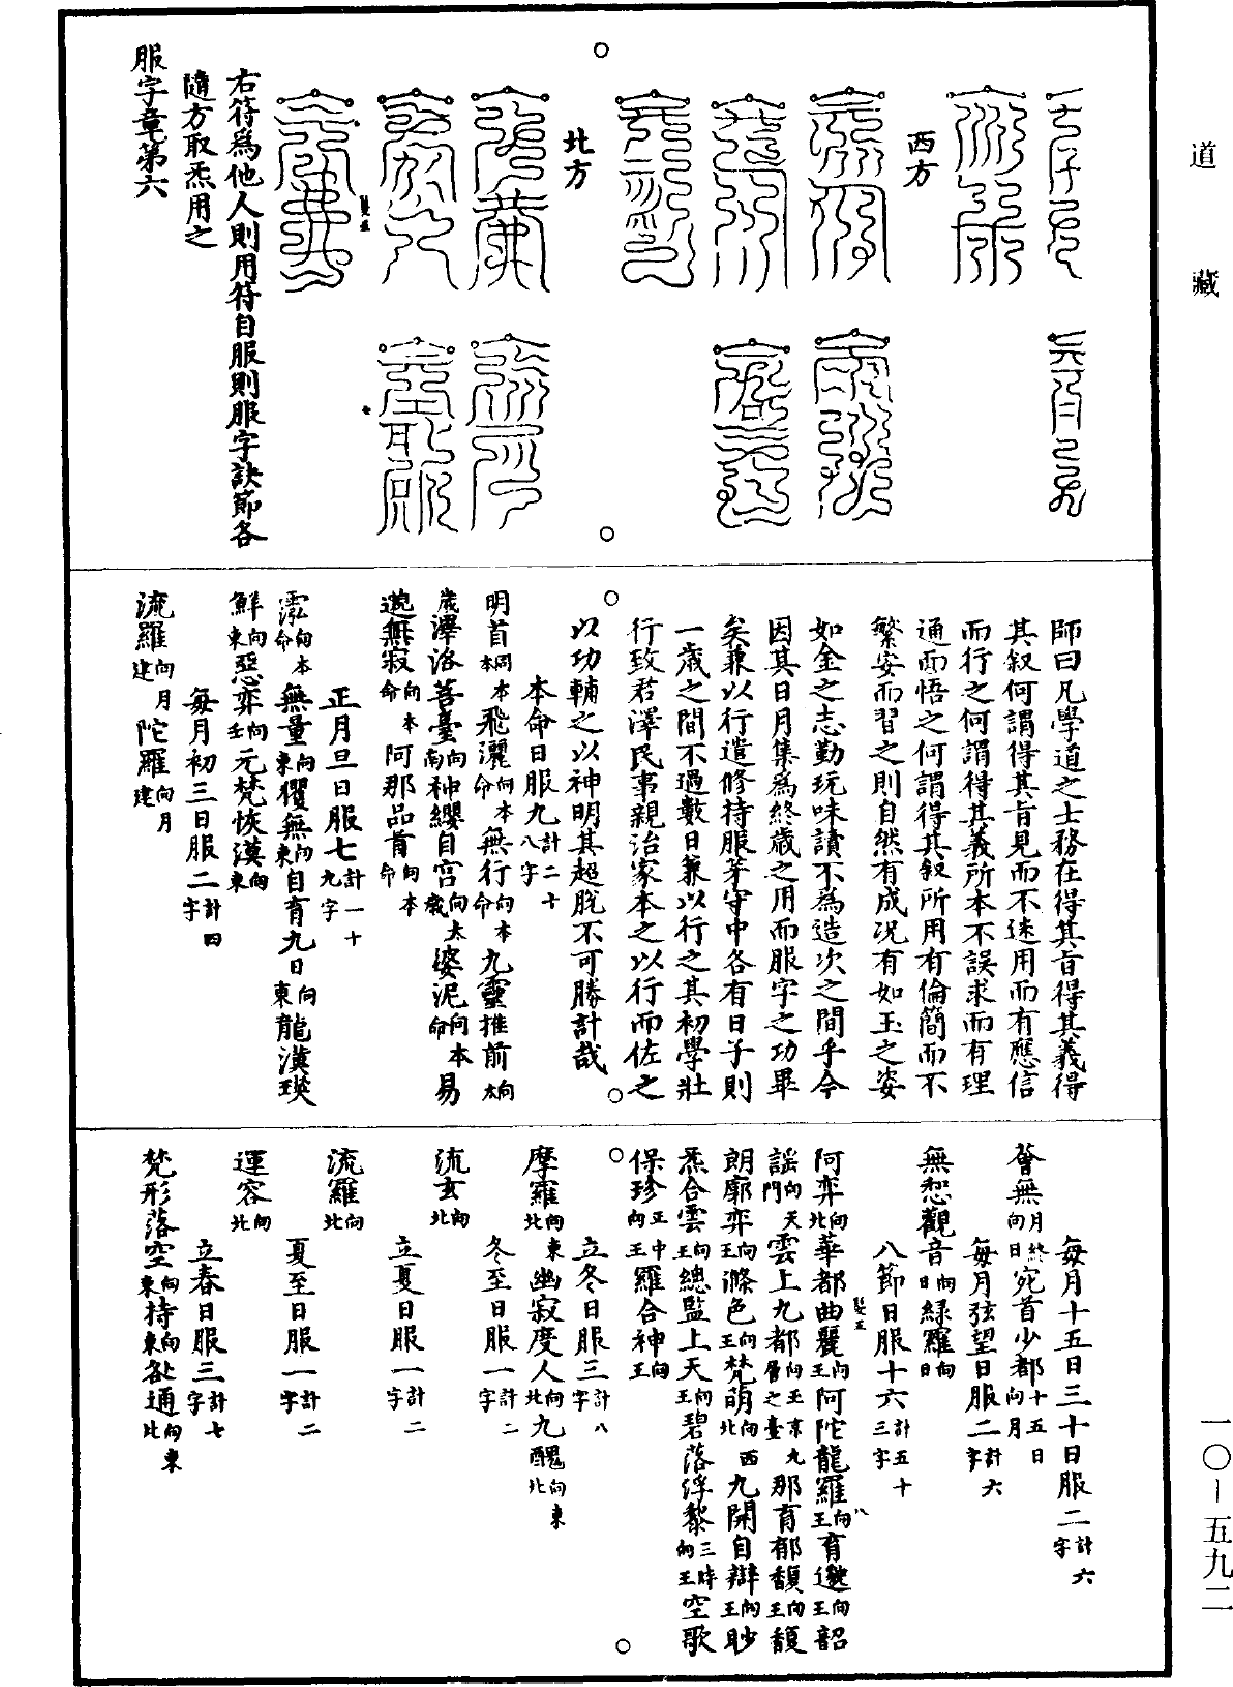 道藏
西方
北方
右符為他人則用符自服則服字訣節各
隨方取炁用之
服字章第六
師曰凡學道之士務在得其旨得其義得
其叙何謂得其旨見而不迷用而有應信
而行之何謂得其義所本不誤求而有理
通而悟之何謂得其叙所用有倫簡而不
繁安而習之則自然有成況有如玉之姿
如金之志勤玩味讀不為造次之間乎今
因其日月集為終歲之用而服字之功畢
矣兼以行遣修持服芽守中各有日子則
一歲之間不過數日兼以行之其初學壯
行致君澤民事親治家本之以行而佐之
以功輔之以神明其超脫不可勝計哉
本命日服九計二十八字
明首向本飛灑向本命無行向本命九靈推前向太
歲澤洛菩臺向南神纓自宮向太歲婆泥向本命易
邈無寂向本命阿那品首向本命
正月旦日服七計一十九字
向本命無量向東玃無向東自育九日向東龍漢瑛
鮮向東惡弈向壬元梵恢漠向東
每月初三日服二計四字
流羅向月建陀羅向月建
每月十五日三十日服二計六字
薈無月終向日宛首少都十五日向月
每月弦望日服二計六字
無惒觀音向日緑羅向日
八節日服十六計五十三字
阿弈向北華都曲麗向王阿陀龍羅向王育邈向王韶
謠向天門雲上九都向玉京九層之臺那育郁馥向王馥
朗廓弈向王滌色向王梵萌向西北九開自辯向王眇
炁合雲向王總監上天向王碧落浮黎三時向王空歌
保珍正中向王羅合神向王
立冬日服三計八字
摩羅向東北幽寂度人向北九醜向東北
冬至日服一計二字
流玄向北
立夏日服一計二字
流羅向北
夏至日服一計二字
運容向北
立春日服三計七字
梵形落空向東持向東通向東北
一〇—五九二